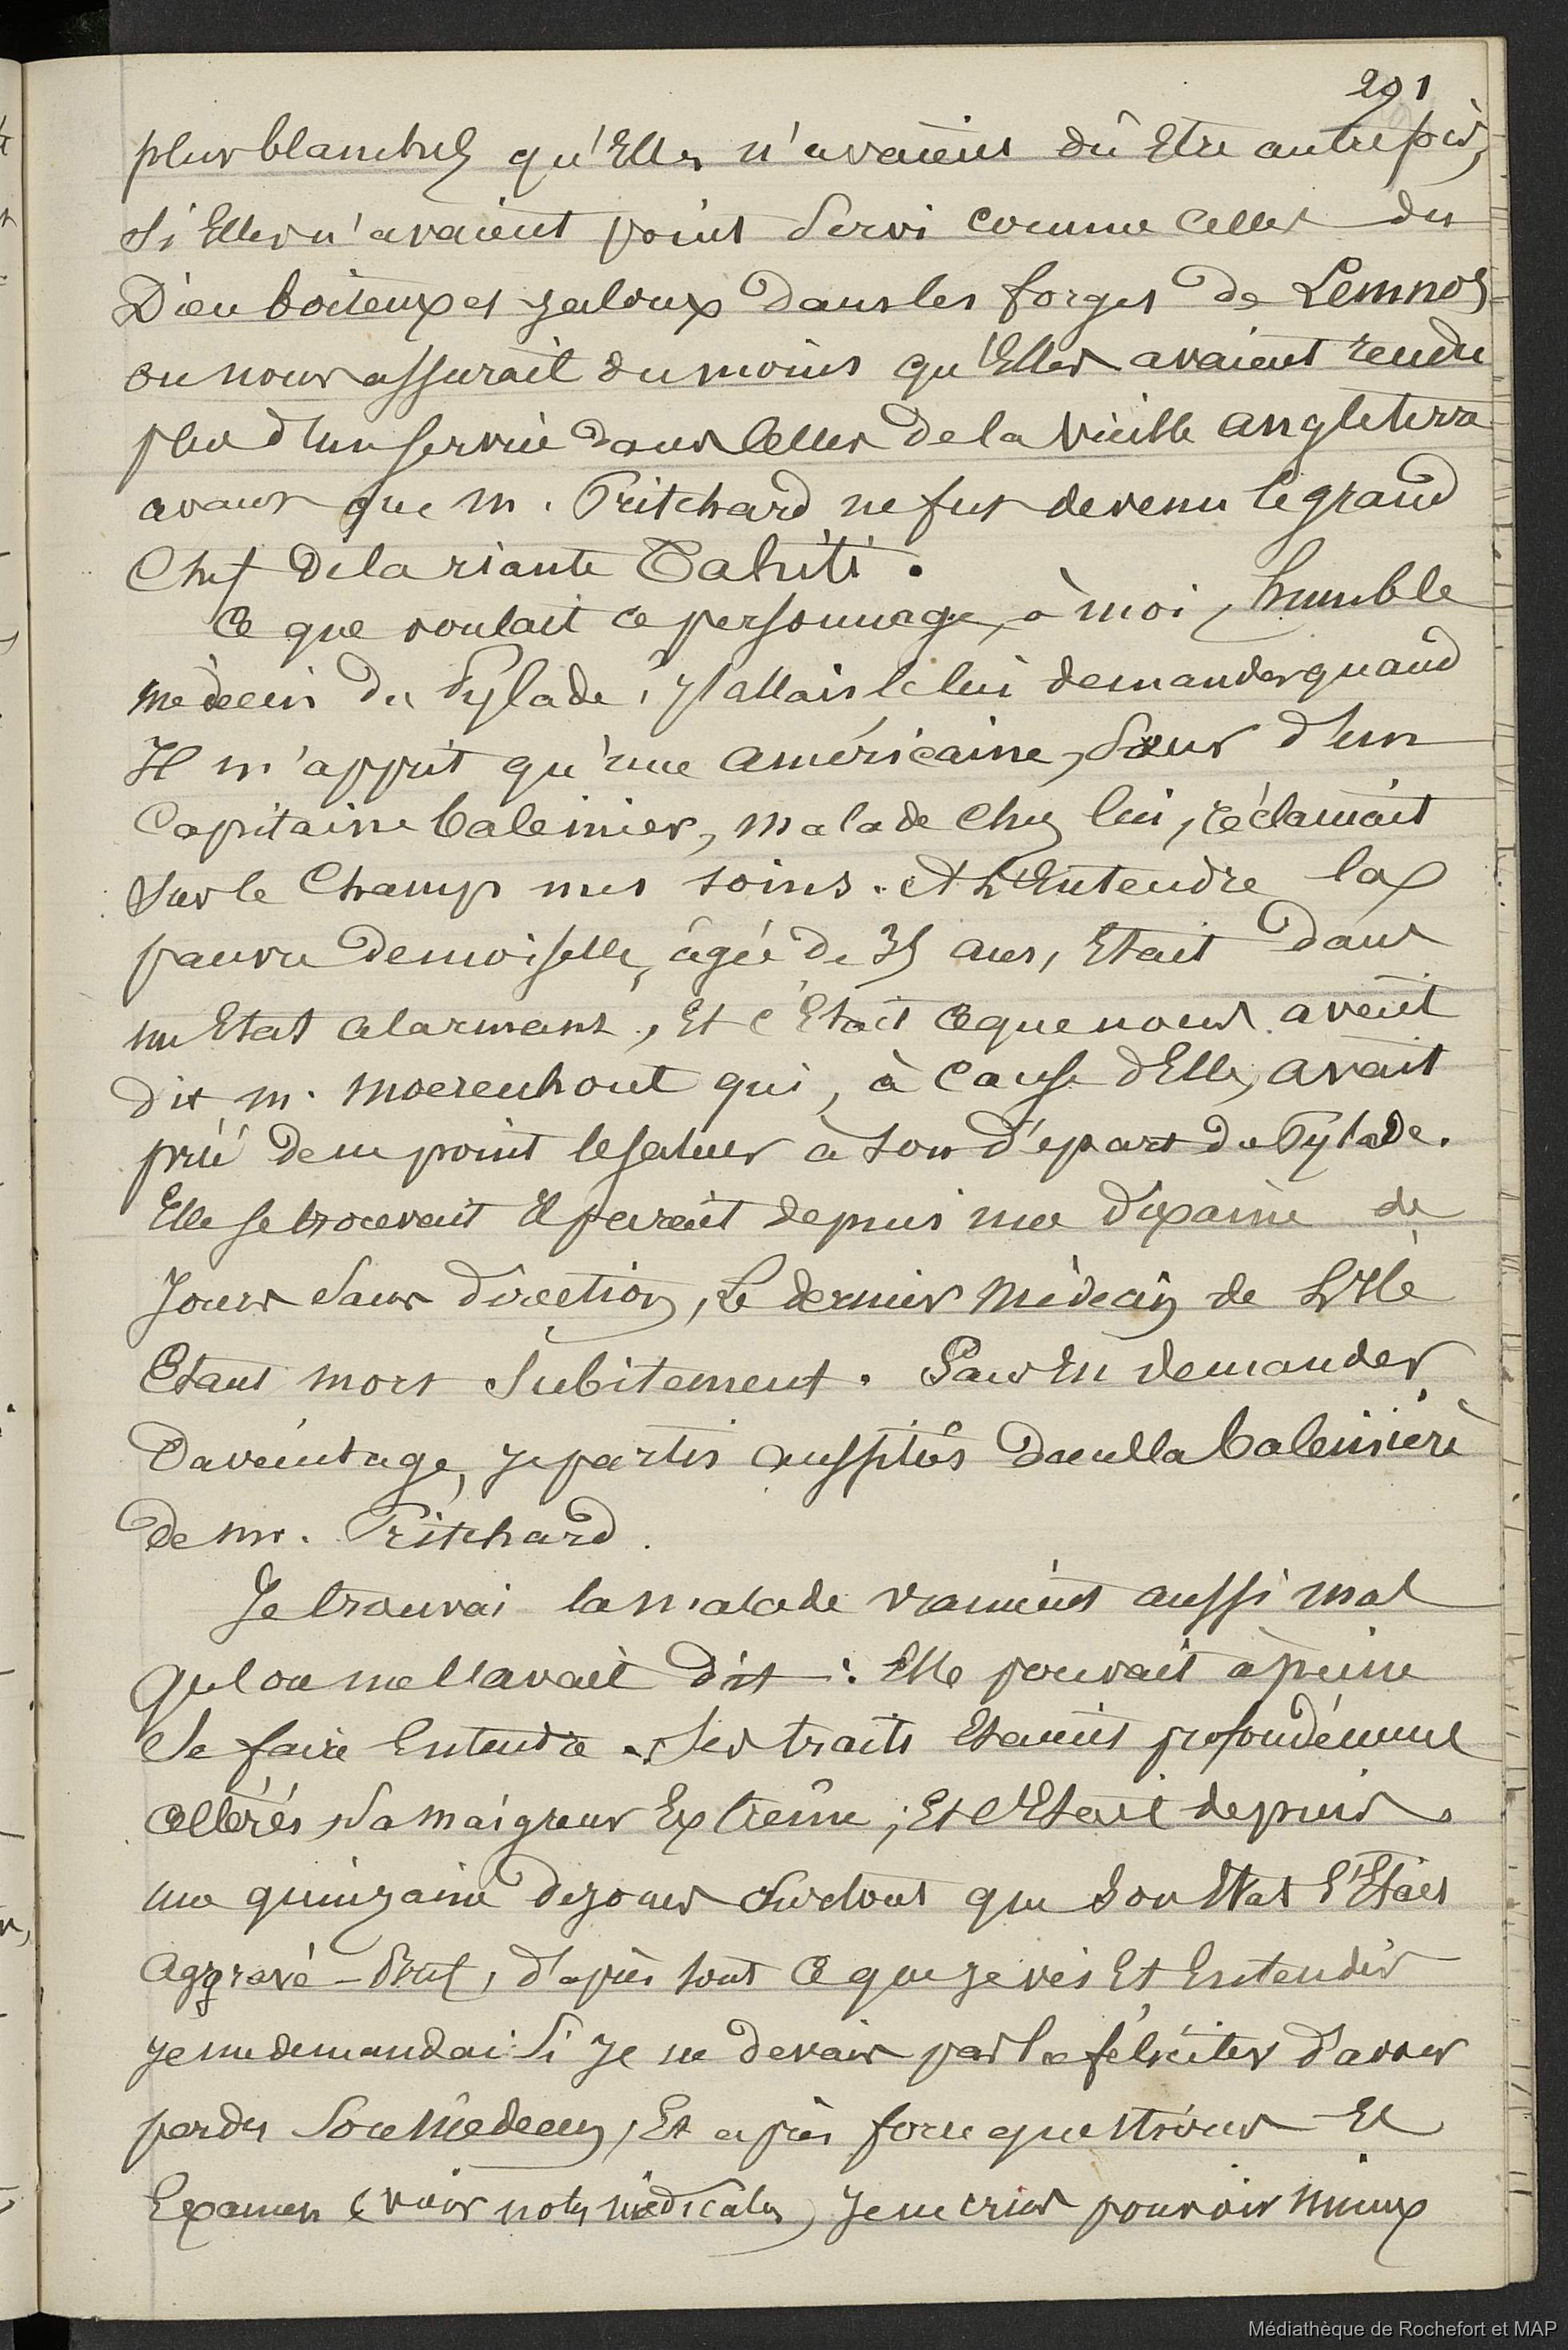 291
plus blanches qu'Elles n'avaient dû Etre autrefois,
Si Elles n'avaient point Servi comme Celles du
Dieu boiteux et jaloux dans les forges de Lemnos
on nous assurait du moins qu'Elles avaient rendu
plus d'un service dans celles de la vieille angleterre
avant que m. Pritchard ne fut devenu le grand
Chef de la riante Tahiti.
Ce que voulait ce personnage, à moi, humble
médecin du Pylade, j'allais le lui demander quand
Il m'apprit qu'une américaine, Sœur d'un
Capitaine baleinier, malade chez lui, réclamait
Sur le Champ mes soins. A L'Entendre la
pauvre demoiselle, âgée de 35 ans, Etait dans
un Etat alarmant, Et c'Etait ce que nous avait
dit m. moerenhout qui, à cause d'Elle, avait
prié de ne point le saluer à son départ du Pylade.
Elle se trouvait Il parait depuis une dixaine de
Jours Sans direction, Le dernier médecin de L'Ile
Etant mort Subitement. Sans En demander
Davantage, je partis aussitôt dans la baleinière
de mr. Pritchard.
Je trouvai la malade vraiment aussi mal
qu'on me l'avait dit : Elle pouvait à peine
Se faire Entendre. Ses traits Etaient profondément
altérés, Sa maigreur Extrême, Et c'Etait depuis
une quinzaine de jours Surtout que Son Etat s'Etait
aggravé - Bref, d'après tout ce que je vis Et Entendis
je me demandai Si Je ne devais pas la féliciter d'avoir
perdu Son Médecin, Et après force questions Et
Examen (voir notes médicales) Je ne crus pouvoir mieux
Médiathèque de Rochefort et MAP